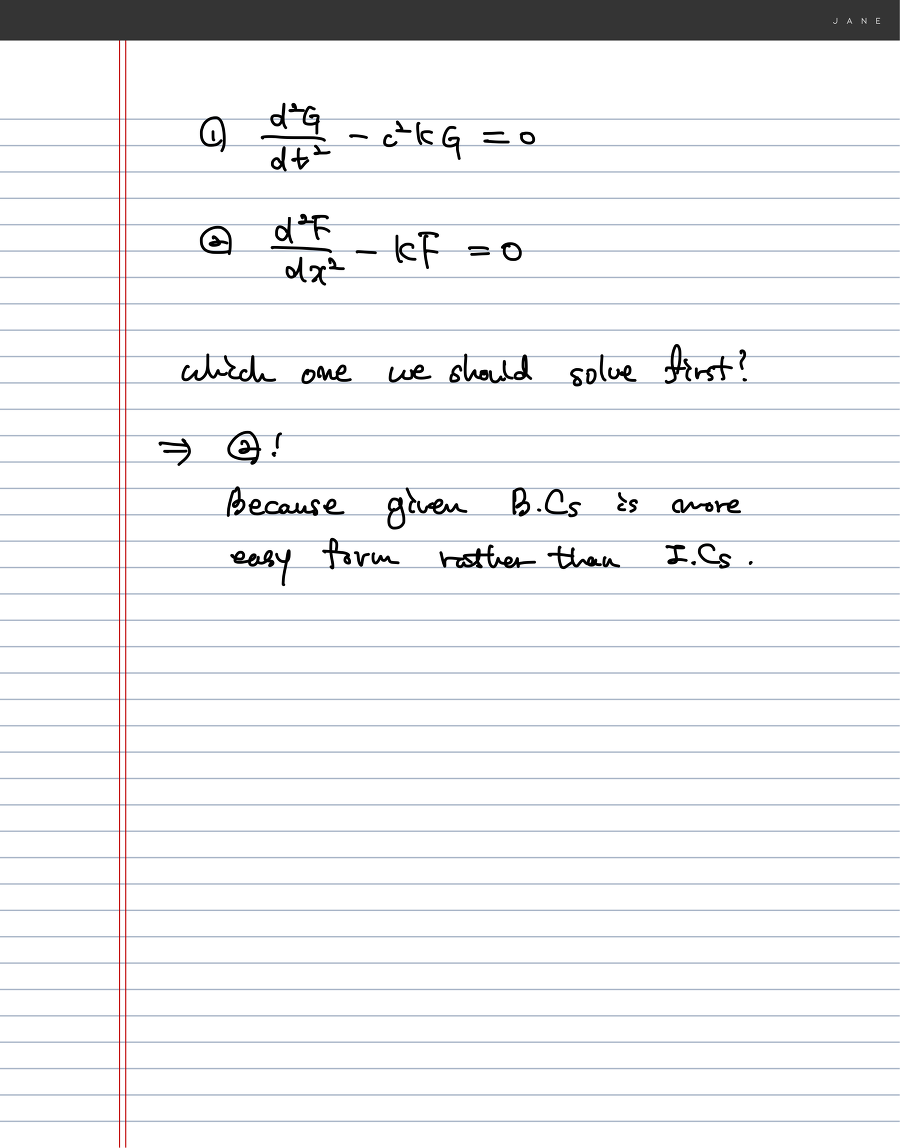 JANE
① d²G/dt² - c²kG = 0
② d²F/dx² - kF = 0
which one we should solve first?
⇒ ②!
Because given B.Cs is more
easy form rather than I.Cs.